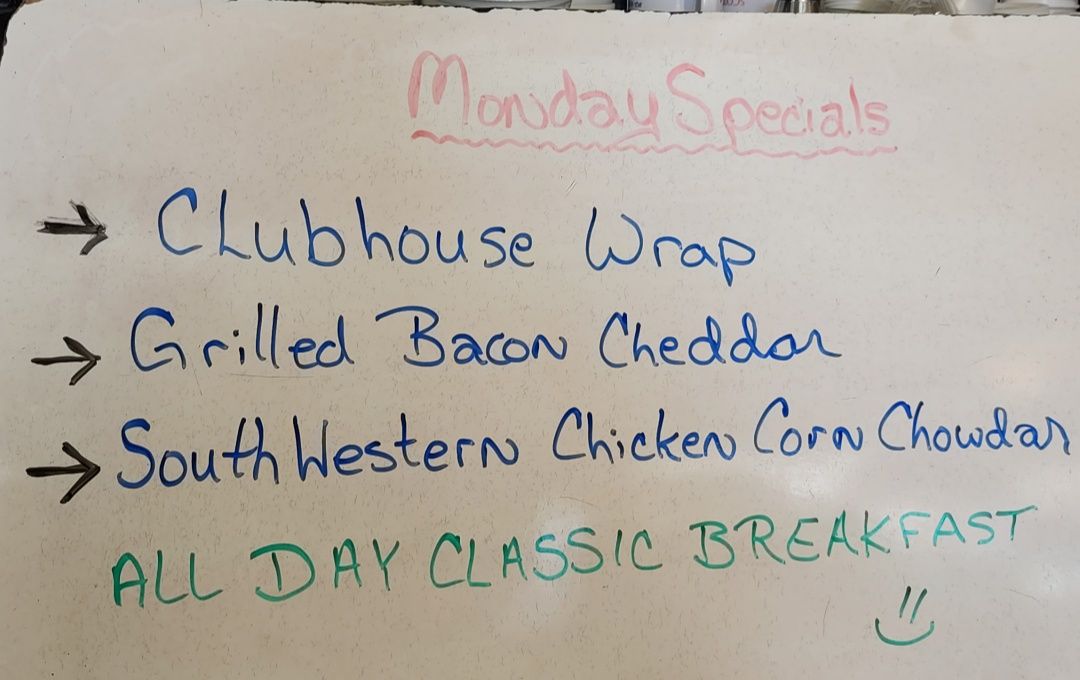 Monday Specials
→ Clubhouse Wrap
→ Grilled Bacon Cheddar
→ SouthWestern Chicken Corn Chowdar
ALL DAY CLASSIC BREAKFAST